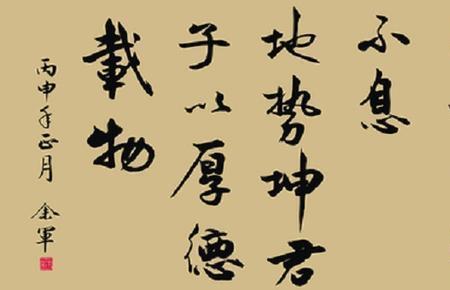 不息
地势坤君
子以厚德
載物
丙申年正月
金軍